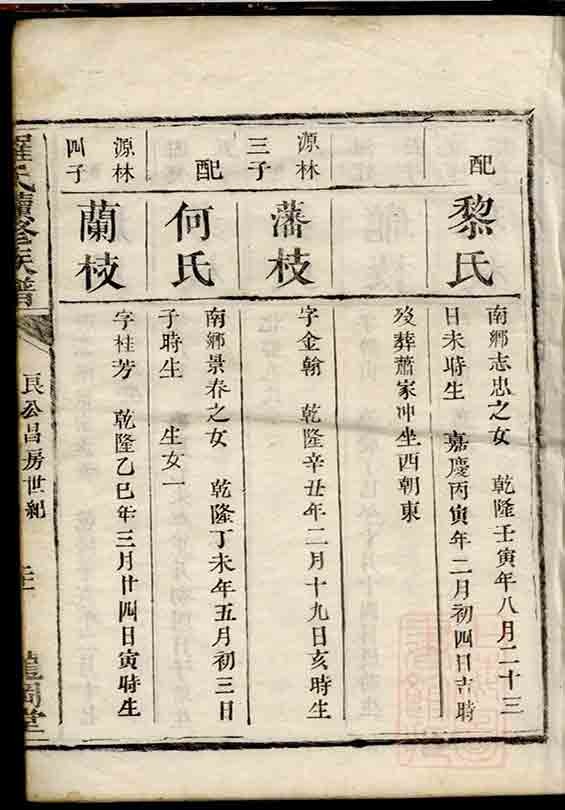 配
黎氏
南鄉志忠之女 乾隆壬寅年八月二十三
日未時生 嘉慶丙寅年二月初四日吉時
歿葬蕭家冲坐西朝東
源林
三子
藩枝
字金翰 乾隆辛丑年二月十九日亥時生
配
何氏
南鄉景春之女 乾隆丁未年五月初三日
子時生 生女一
源林
四子
蘭枝
字桂芳 乾隆乙巳年三月廿四日寅時生
羅氏續修族譜
良公昌房世紀